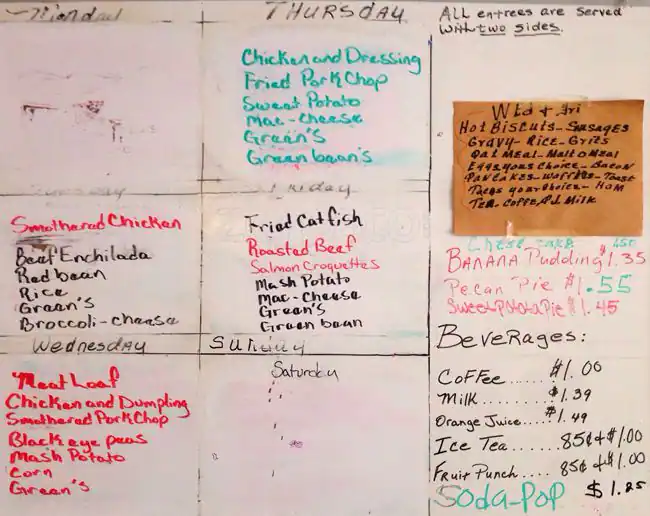 Monday
THURSDAY
Chicken and Dressing
Fried Pork Chop
Sweet Potato
Mac-cheese
Green's
Green bean's
Tuesday
Smothered Chicken
Beef Enchilada
Red bean
Rice
Green's
Broccoli-cheese
Friday
Fried Catfish
Roasted Beef
Salmon Croquettes
Mash Potato
Mac-Cheese
Green's
Green bean
Wednesday
Meat Loaf
Chicken and Dumpling
Smothered Pork Chop
Black eye peas
Mash Potato
Corn
Green's
Sunday
Saturday
ALL entrees are served
with two sides.
Wed & Fri
Hot Biscuits-Sausages
Gravy-Rice-Grits
Oatmeal-MaltOMeal
Eggs your choice-Bacon
Pancakes-Waffles-Toast
your choice-Ham
Tea Coffe Milk
Chese cake 150
BANANA Pudding $1.35
Pecan Pie $1.55
Sweet Potata Pie $1.45
BeverAges:
Coffee..... $1.00
Milk........ $1.39
Orange Juice... $1.49
Ice Tea...... 85¢ & $1.00
Fruit Punch.... 85¢ & $1.00
Soda-Pop $1.25